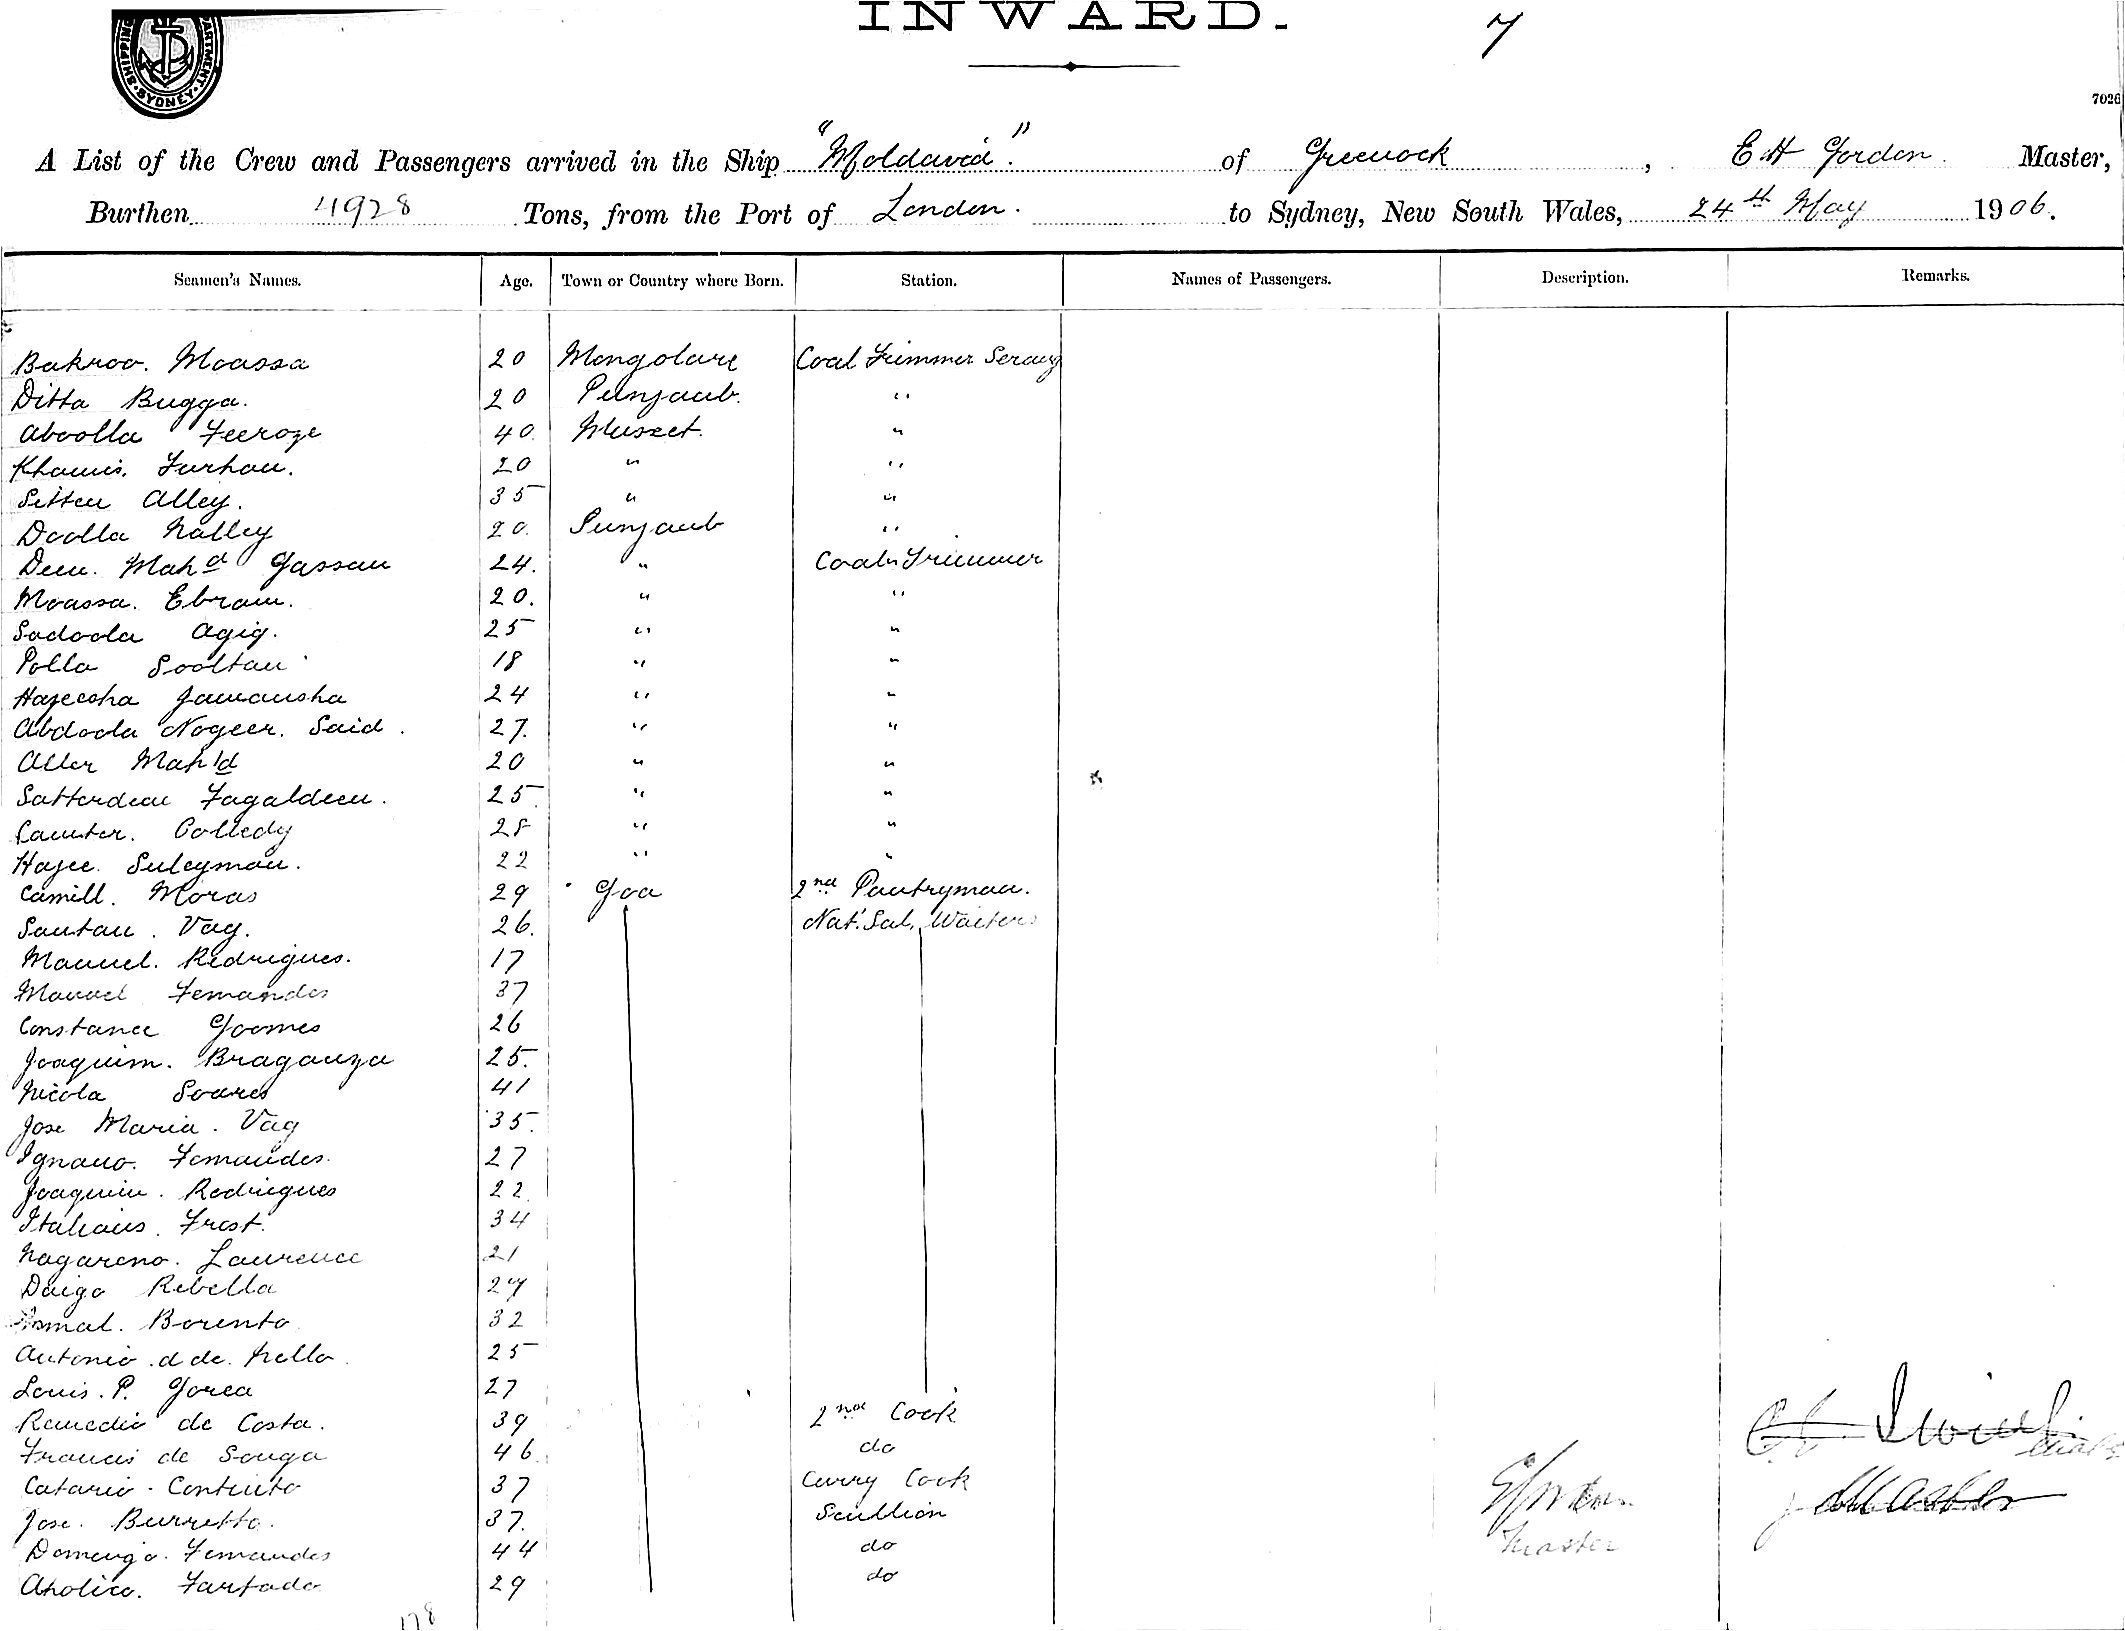 INWARD.
7
SHIPPING DEPARTMENT SYDNEY
7026
A List of the Crew and Passengers arrived in the Ship "Moldavia". of Greenock, E H Gordon. Master,
Burthen 4928 Tons, from the Port of London. to Sydney, New South Wales, 24th May 1906.
Seamen's Names. Age. Town or Country where Born. Station. Names of Passengers. Description. Remarks.
Bakroo. Moassa 20 Mongolare Coal Trimmer Serang
Ditta Bugga. 20 Punjaub. "
Aboolla Feeroze 40. Muscet. "
Khamis. Furhan. 20 " "
Sitten Alley. 35 " "
Doolla Nalley 20. Punjaub "
Deen. Mahd Gassan 24. " Coal Trimmer
Moassa. Ebram. 20. " "
Sadoola Agig. 25 " "
Polla Sooltan 18 " "
Hajeesha Jamansha 24 " "
Abdoola Nogeer. Said. 27. " "
Aller Mah'd 20 " "
Satterdeen Fagaldeen. 25. " "
Camter. Colledy 28 " "
Hajee. Suleyman. 22 " "
Camill. Moras 29 Goa 2nd Pantryman.
Santan. Vaz. 26. Nat. Sal. Waiters
Manuel. Redrigues. 17
Manoel Fernandes 37
Constance Goomes 26
Joaquim. Braganza 25.
Nicola Soares 41
Jose Maria. Vaz 35.
Ignacio. Fernandes. 27
Joaquim. Rodrigues 22.
Italians. Frost. 34
Nazareno. Laurence 21
Daigo Rebella 27
Borento 32
Antonio. d de. Mello. 25
Louis. P. Gorea 27
Remedio de Costa. 39 2nd Cook
Francis de Souza 46. do
Catario. Contento 37 Curry Cook
Jose. Burretto. 37. Scullion
Domengo. Fernandes 44 do
Aholico. Furtado 29 do
Master
178